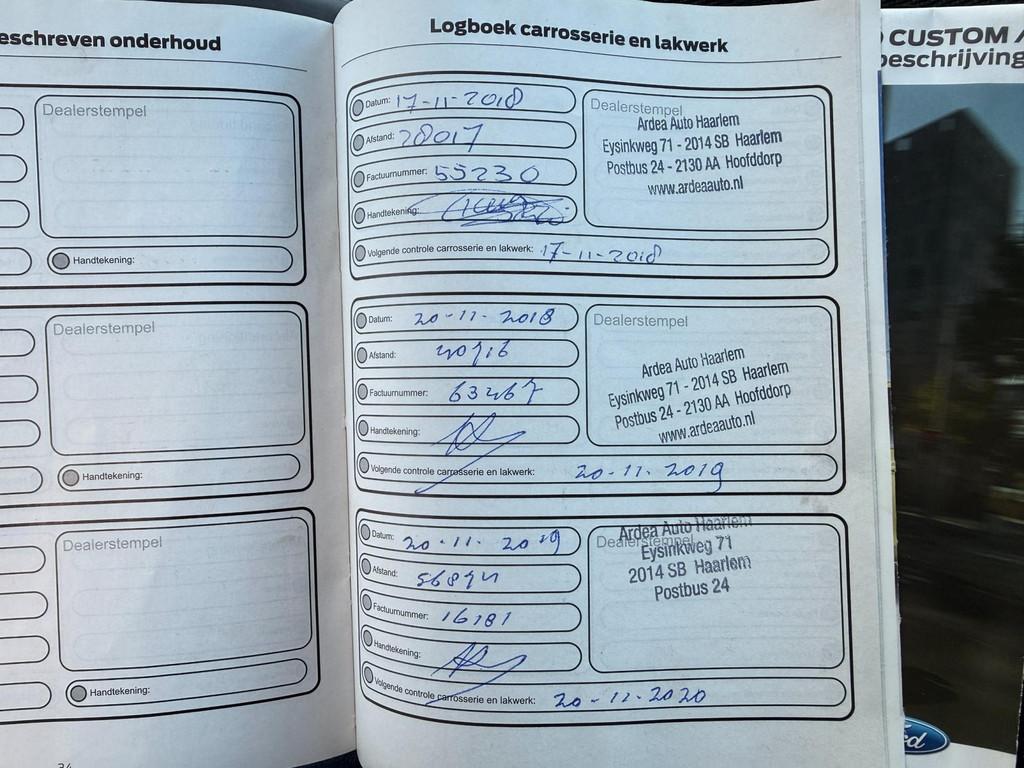 eschreven onderhoud
Dealerstempel
Handtekening:
Dealerstempel
Handtekening:
Dealerstempel
Handtekening:
34
Logboek carrosserie en lakwerk
Datum: 17-11-2018
Afstand: 28017
Factuurnummer: 55230
Handtekening:
Volgende controle carrosserie en lakwerk: 17-11-2018
Dealerstempel
Ardea Auto Haarlem
Eysinkweg 71 - 2014 SB Haarlem
Postbus 24 - 2130 AA Hoofddorp
www.ardeaauto.nl
Datum: 20-11-2018
Afstand:
Factuurnummer: 63467
Handtekening:
Volgende controle carrosserie en lakwerk: 20-11-2019
Dealerstempel
Ardea Auto Haarlem
Eysinkweg 71 - 2014 SB Haarlem
Postbus 24 - 2130 AA Hoofddorp
www.ardeaauto.nl
Datum: 20-11-2019
Afstand:
Factuurnummer: 16181
Handtekening:
Volgende controle carrosserie en lakwerk: 20-11-2020
Dealerstempel
Ardea Auto Haarlem
Eysinkweg 71
2014 SB Haarlem
Postbus 24
CUSTOM
beschrijving